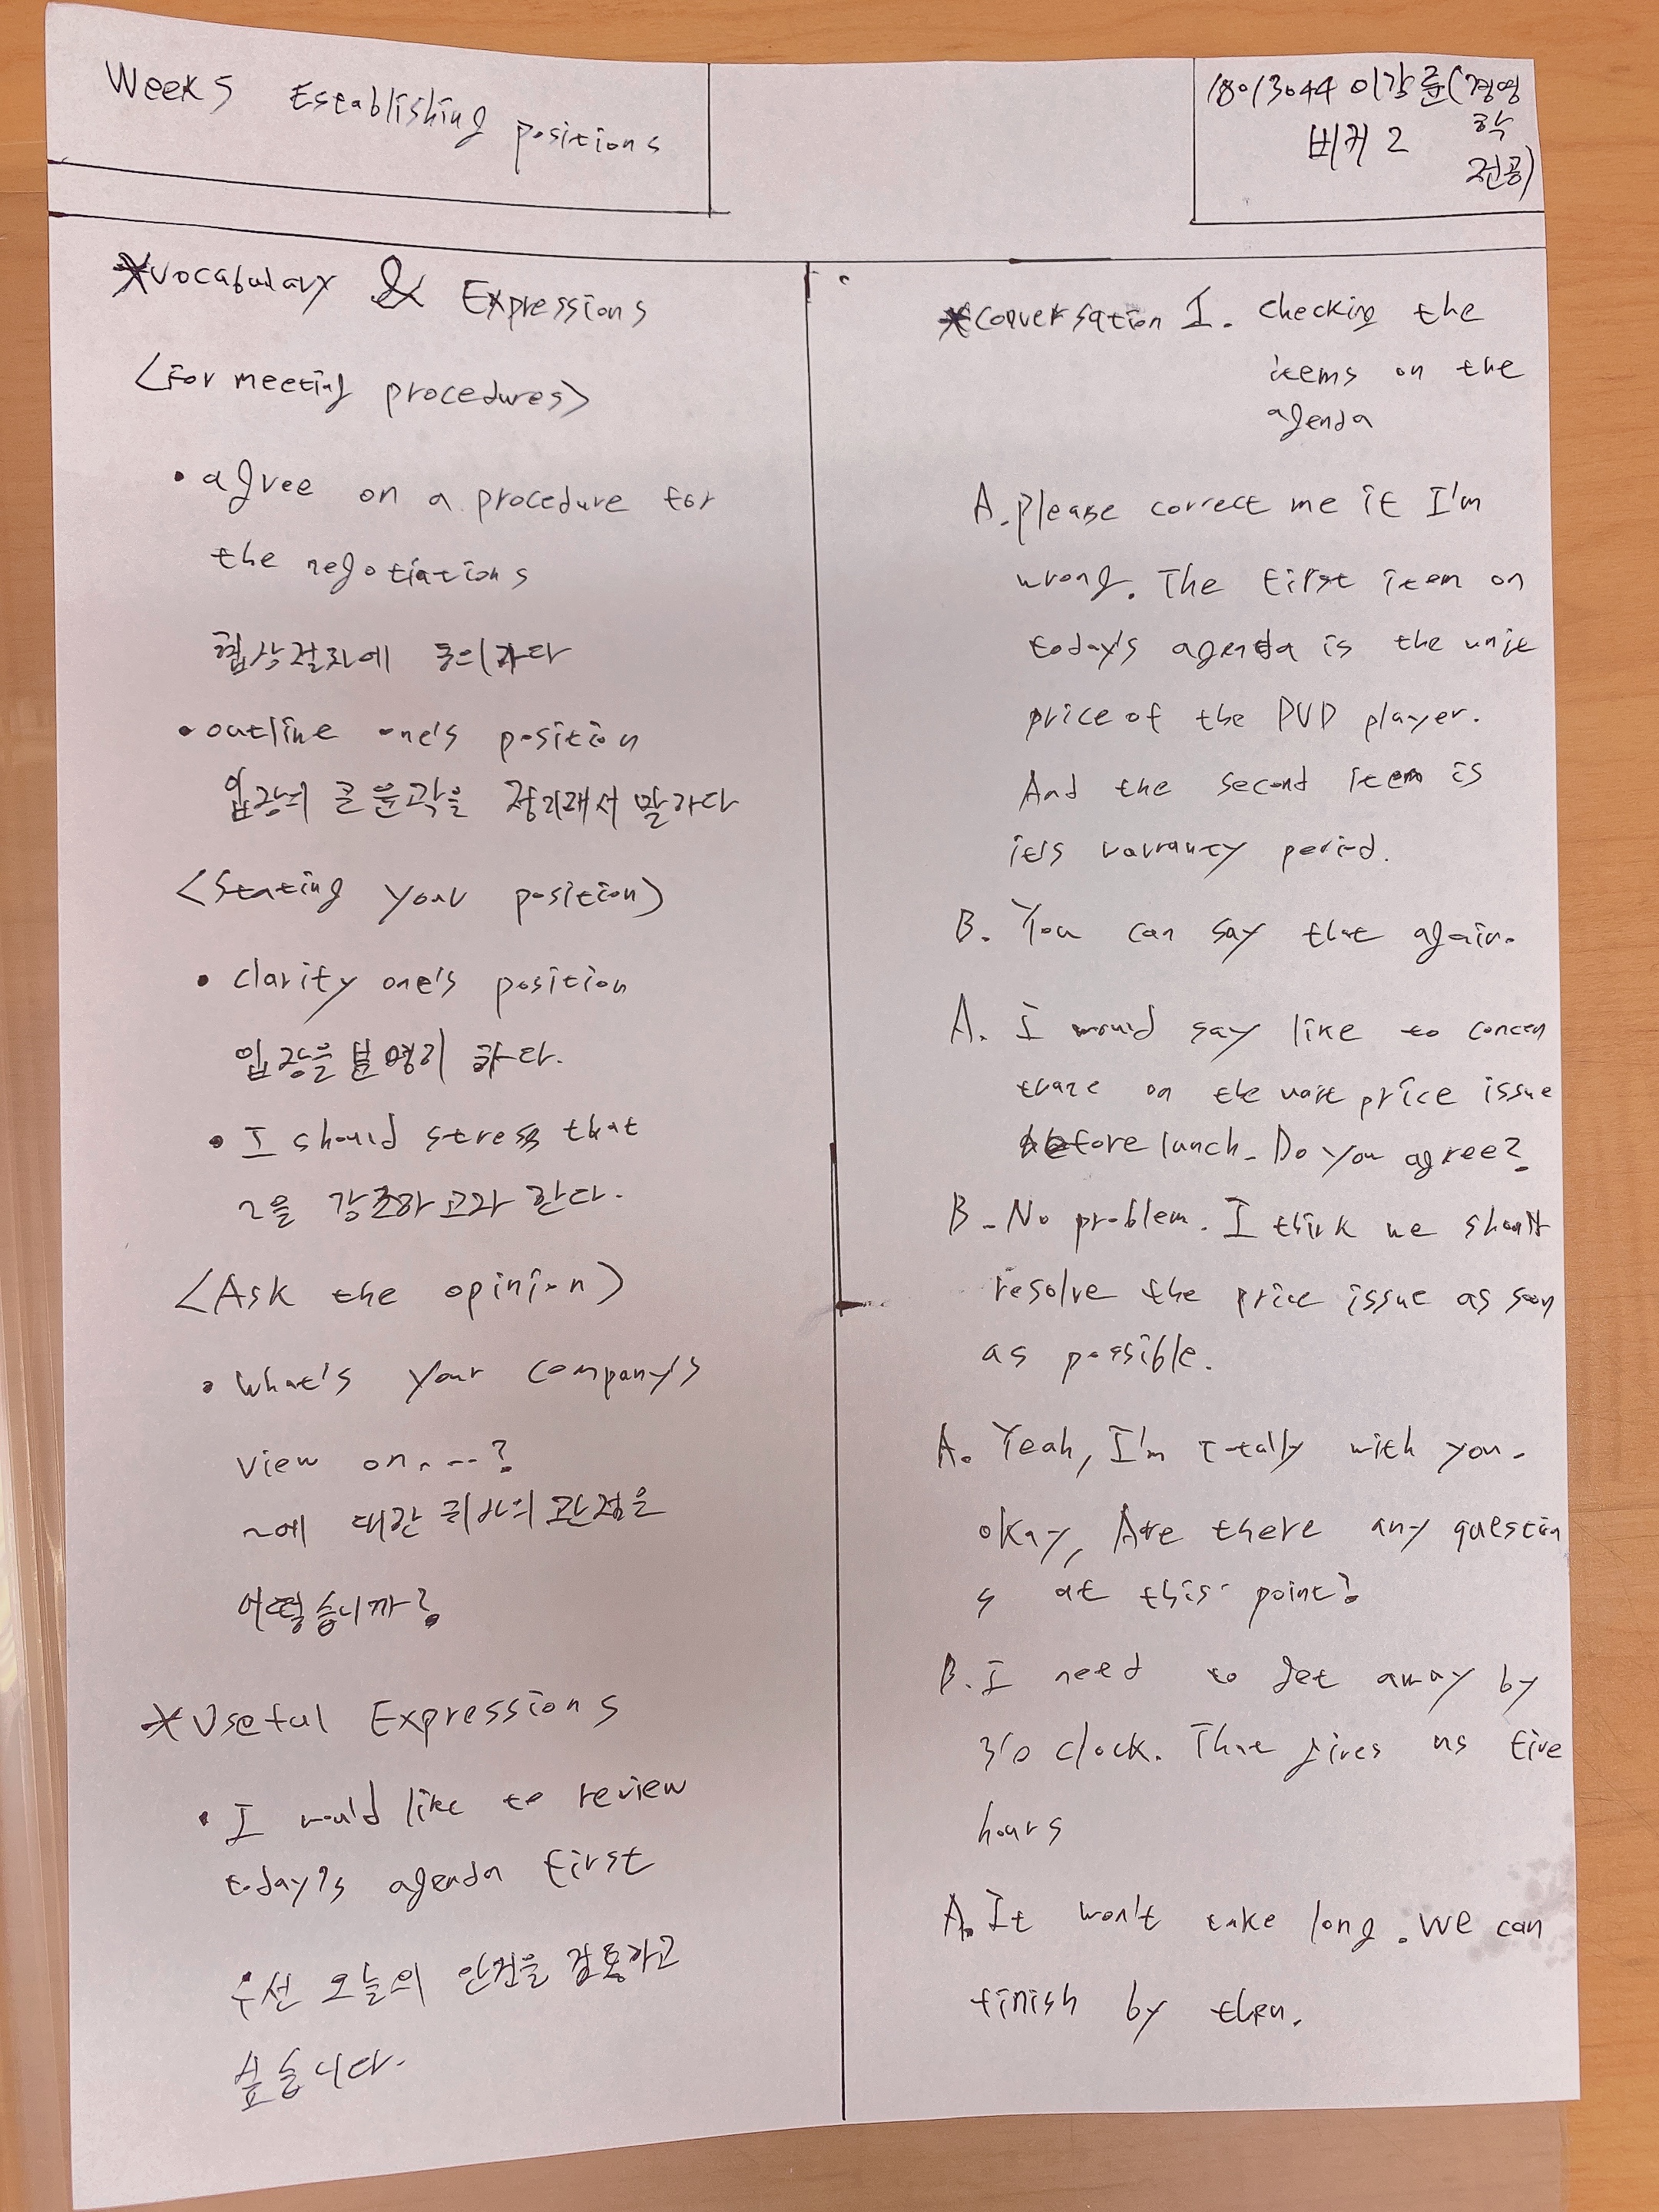 Week 5 Establishing positions
18013044 이강륜(경영
학
비커 2
전공)
*Vocabulary & Expressions
<For meeting procedures>
• agree on a procedure for
the negotiations
협상절차에 동의하다
• outline one's position
입장의 큰 윤곽을 정리해서 말하다
<Stating your position>
• clarify one's position
입장을 분명히 하다.
• I should stress that
~을 강조하고자 한다.
<Ask the opinion>
• What's your company's
view on....?
~에 대한 귀사의 관점은
어떻습니까?
*Useful Expressions
• I would like to review
today's agenda first
우선 오늘의 안건을 검토하고
싶습니다.
*Conversation I. Checking the
items on the
agenda
A. please correct me if I'm
wrong. The first item on
today's agenda is the unit
price of the DVD player.
And the second item is
it's warranty period.
B. You can say that again.
A. I would say like to concen
trate on the unit price issue
before lunch. Do you agree?
B. No problem. I think we should
resolve the price issue as soon
as possible.
A. Yeah, I'm totally with you.
okay, Are there any question
s at this point?
B. I need to get away by
3'o clock. That gives us five
hours
A. It won't take long. we can
finish by then.